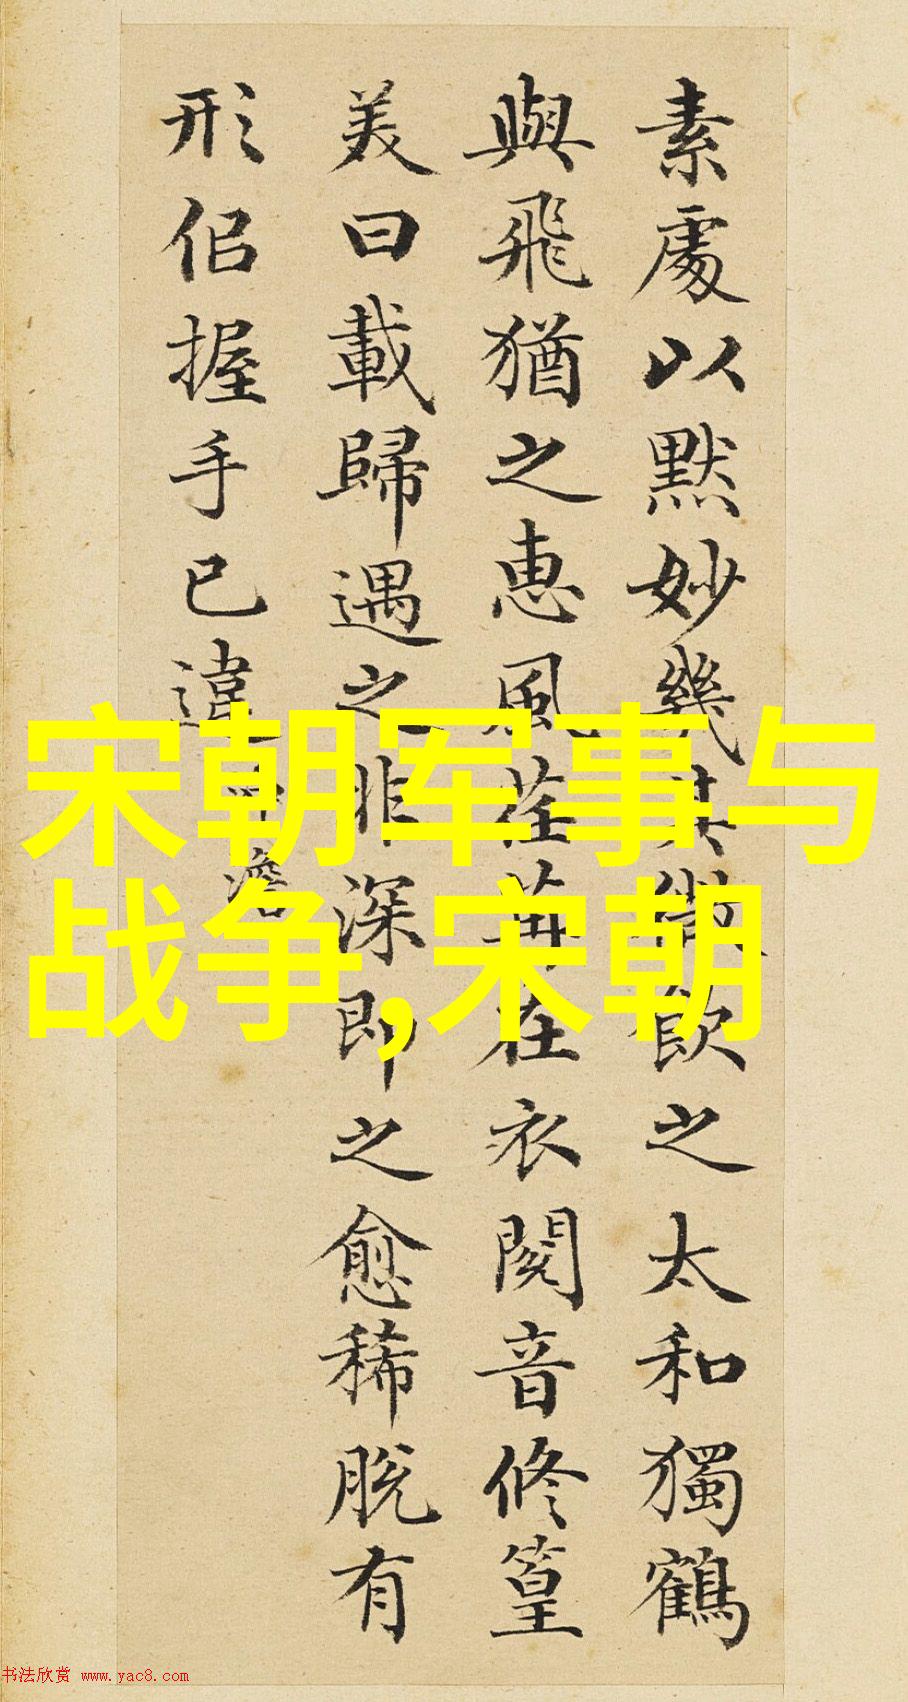 素處以默妙幾其微飲之太和獨鶴
與飛猶之惠風荏苒在衣閱音修篁
美曰載歸遇之非深即之愈稀脫有
形佀握手已違
澹
宋朝军事与
战争,宋朝
书法欣赏 www.yac8.com